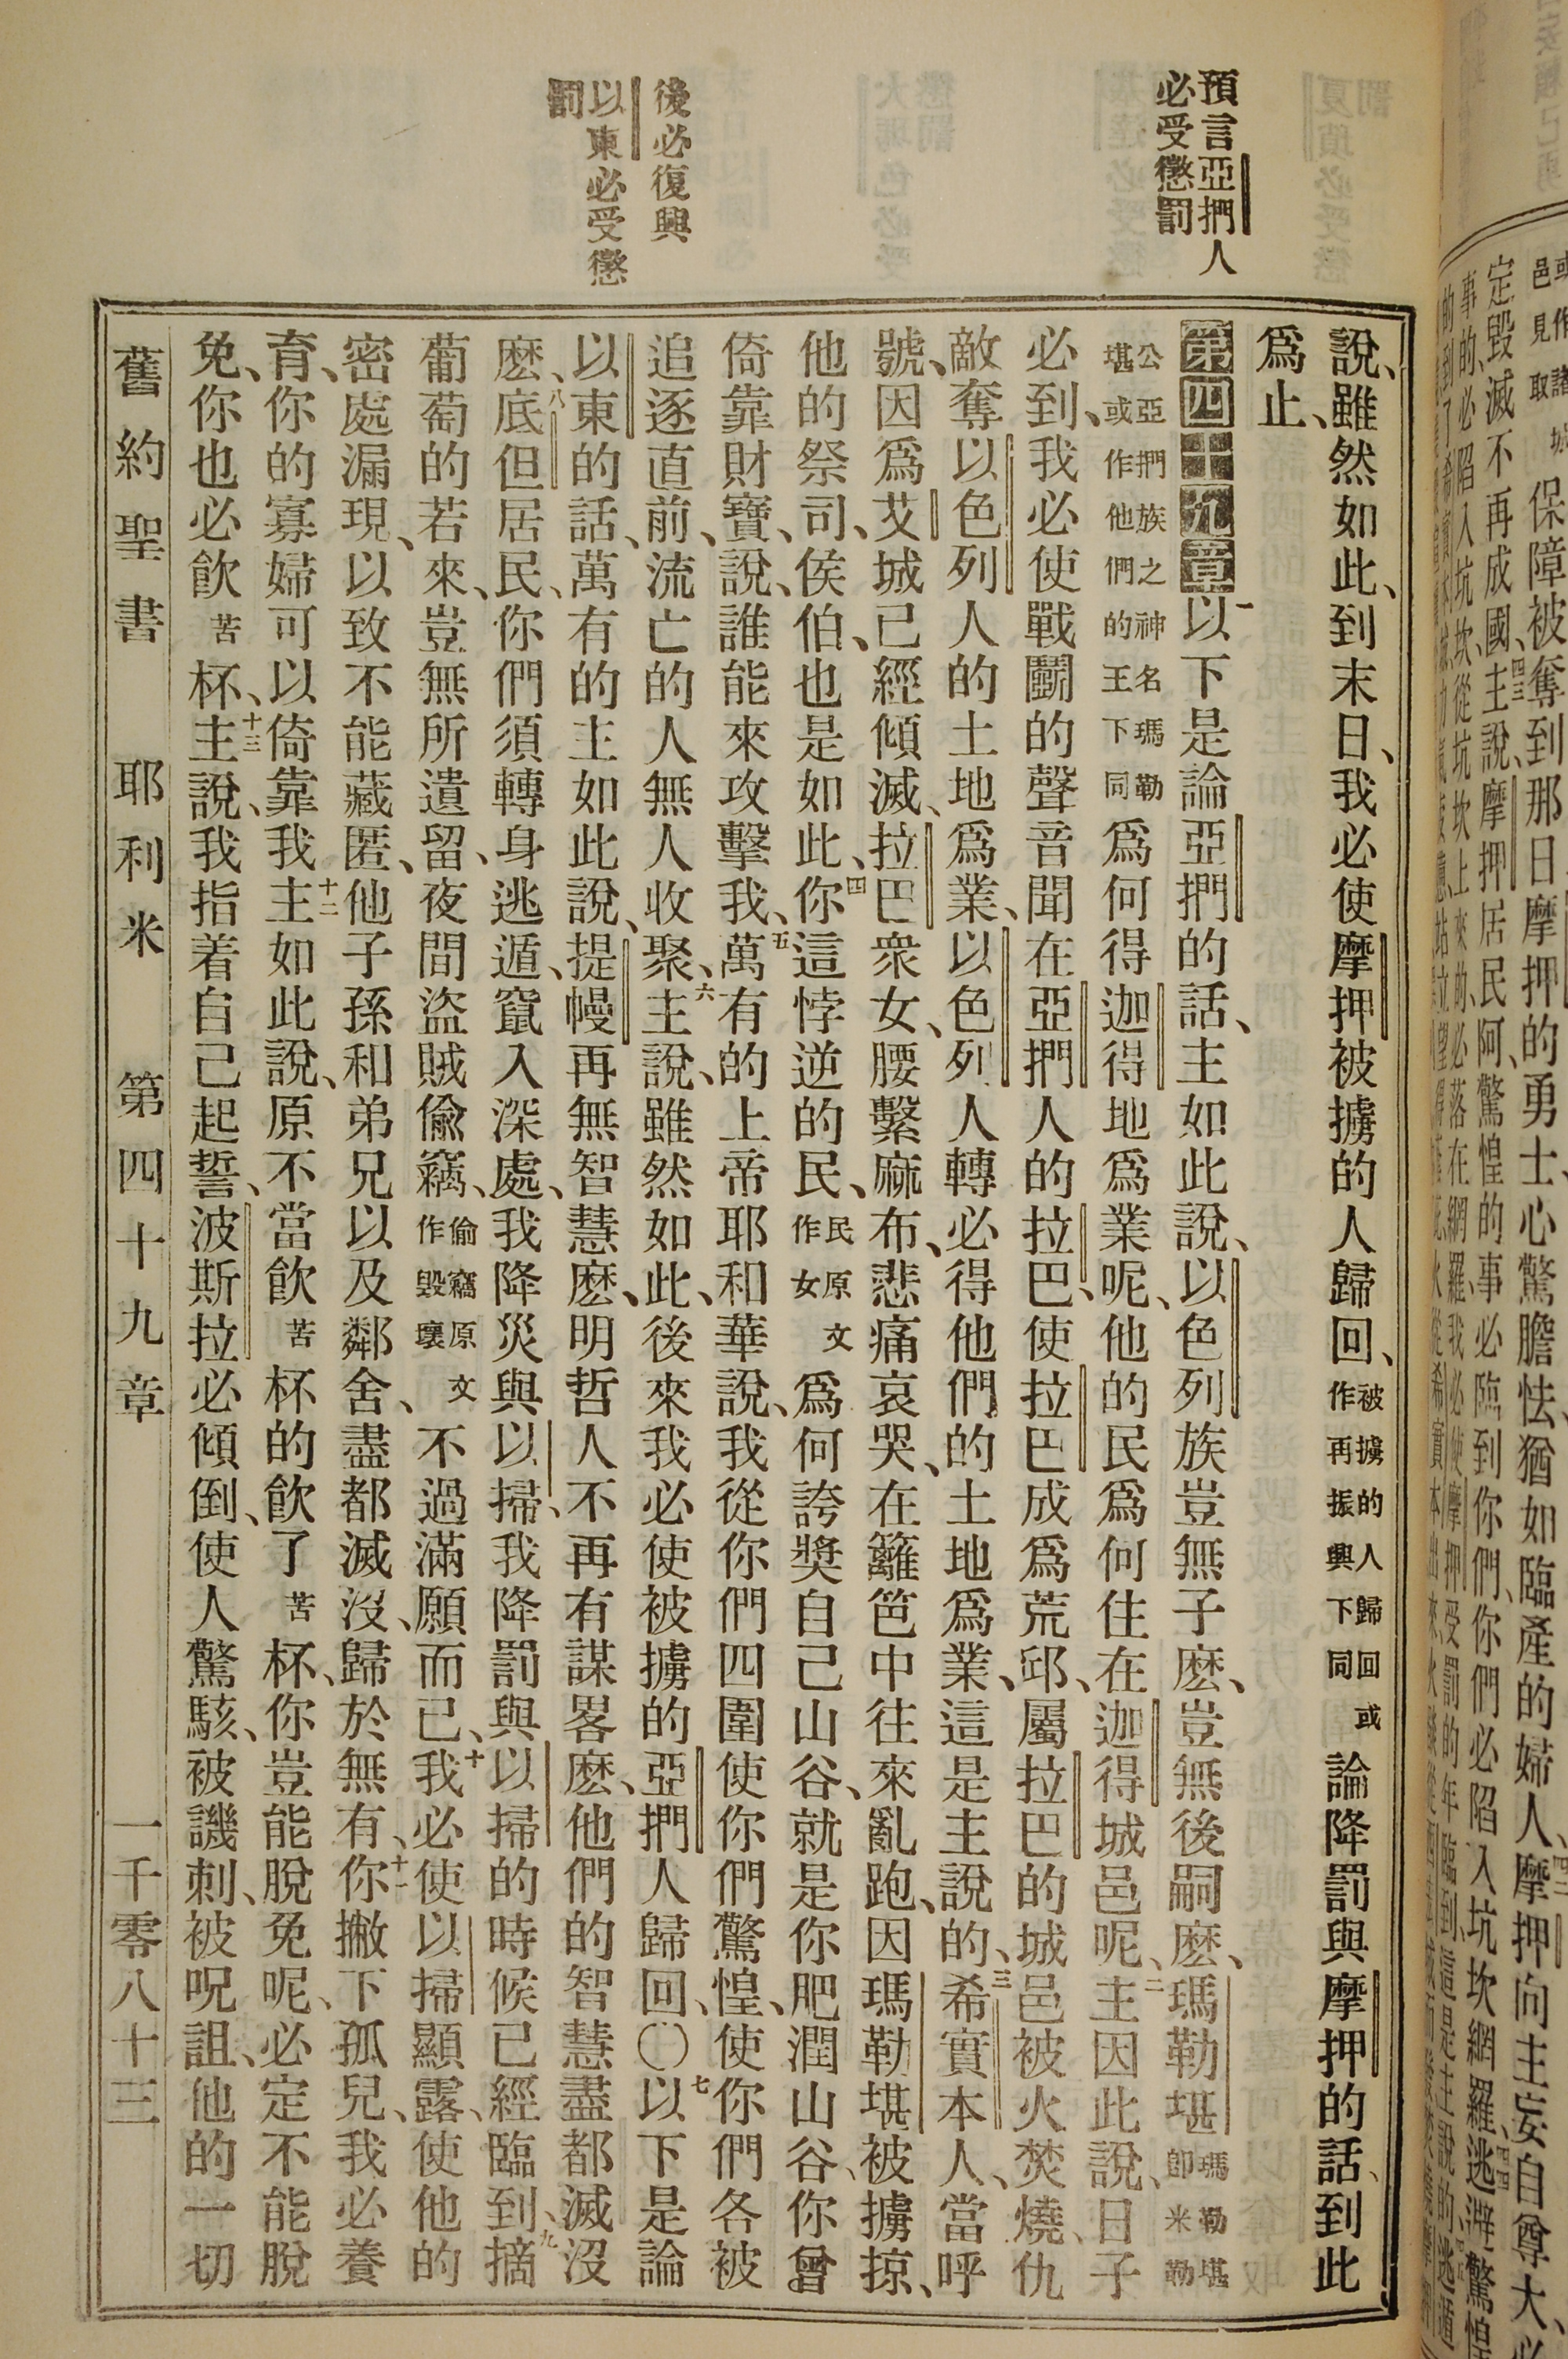 預言亞捫人
必受懲罰
後必復興
以東必受懲
罰
說、雖然如此、到末日、我必使摩押被擄的人歸回、被擄的人歸回或作再振興下同論降罰與摩押的話、到此
爲止、
第四十九章一以下是論亞捫的話、主如此說、以色列族豈無子麽、豈無後嗣麽、瑪勒堪瑪勒堪卽米勒
公亞捫族之神名瑪勒堪或作他們的王下同爲何得迦得地爲業呢、他的民爲何住在迦得城邑呢、二主因此說、日子
必到、我必使戰鬬的聲音聞在亞捫人的拉巴、使拉巴成爲荒邱、屬拉巴的城邑被火焚燒、仇
敵奪以色列人的土地爲業、以色列人轉必得他們的土地爲業、這是主說的、三希實本人、當呼
號、因爲艾城已經傾滅、拉巴衆女、腰繫麻布、悲痛哀哭、在籬笆中往來亂跑、因瑪勒堪被擄掠、
他的祭司、侯伯、也是如此、四你這悖逆的民、民原文作女爲何誇獎自己山谷、就是你肥潤山谷、你曾
倚靠財寶、說、誰能來攻擊我、五萬有的上帝耶和華說、我從你們四圍使你們驚惶、使你們各被
追逐直前、流亡的人無人收聚、六主說、雖然如此、後來我必使被擄的亞捫人歸回、〇七以下是論
以東的話、萬有的主如此說、提幔再無智慧麽、明哲人不再有謀畧麽、他們的智慧盡都滅沒
麽、八底但居民、你們須轉身逃遁、竄入深處、我降災與以掃、我降罰與以掃的時候已經臨到、九摘
葡萄的若來、豈無所遺留、夜間盜賊偸竊、偸竊原文作毀壞不過滿願而已、十我必使以掃顯露、使他的
密處漏現、以致不能藏匿、他子孫和弟兄以及鄰舍、盡都滅沒、歸於無有、十一你撇下孤兒、我必養
育、你的寡婦可以倚靠我、十二主如此說、原不當飮苦杯的飮了苦杯、你豈能脫免呢、必定不能脫
免、你也必飮苦杯、十三主說、我指着自己起誓、波斯拉必傾倒、使人驚駭、被譏刺、被呪詛、他的一切
舊約聖書 耶利米 第四十九章 一千零八十三